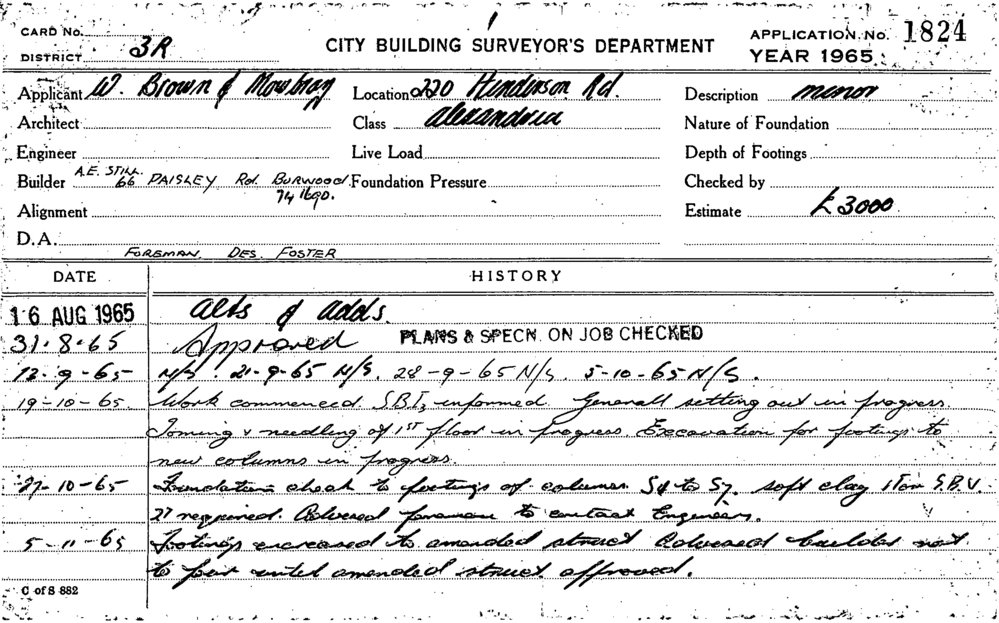 CARD No.
DISTRICT 3R
CITY BUILDING SURVEYOR'S DEPARTMENT
APPLICATION No. 1824
YEAR 1965
Applicant W. Brown & Mowbray
Location 220 Henderson Rd.
Description minor
Architect
Class Alexandria
Nature of Foundation
Engineer
Live Load
Depth of Footings
Builder A.E. STILL.
66 PAISLEY Rd. BURWOOD
74 1690.
Foundation Pressure
Checked by
Alignment
Estimate £3000
D.A.
FOREMAN. DES. FOSTER
DATE HISTORY
16 AUG 1965 Alts & adds.
31.8.65 Approved PLANS & SPECN. ON JOB CHECKED
13-9-65 N/S. 21-9-65 N/S. 28-9-65 N/S. 5-10-65 N/S.
19-10-65. Work commenced. S.B.I. informed. Generall setting out in progress.
& needling of 1ST floor in progress. Excavation for footings to
new columns in progress.
27-10-65 Foundation check to footings of columns S4 to S7. soft clay 1 Ton S.B.V.
2T required. Advised foreman to contact Engineers.
5-11-65 Footings increased to amended struct Advised builder not
to pour until amended struct. approved.
C of S 882